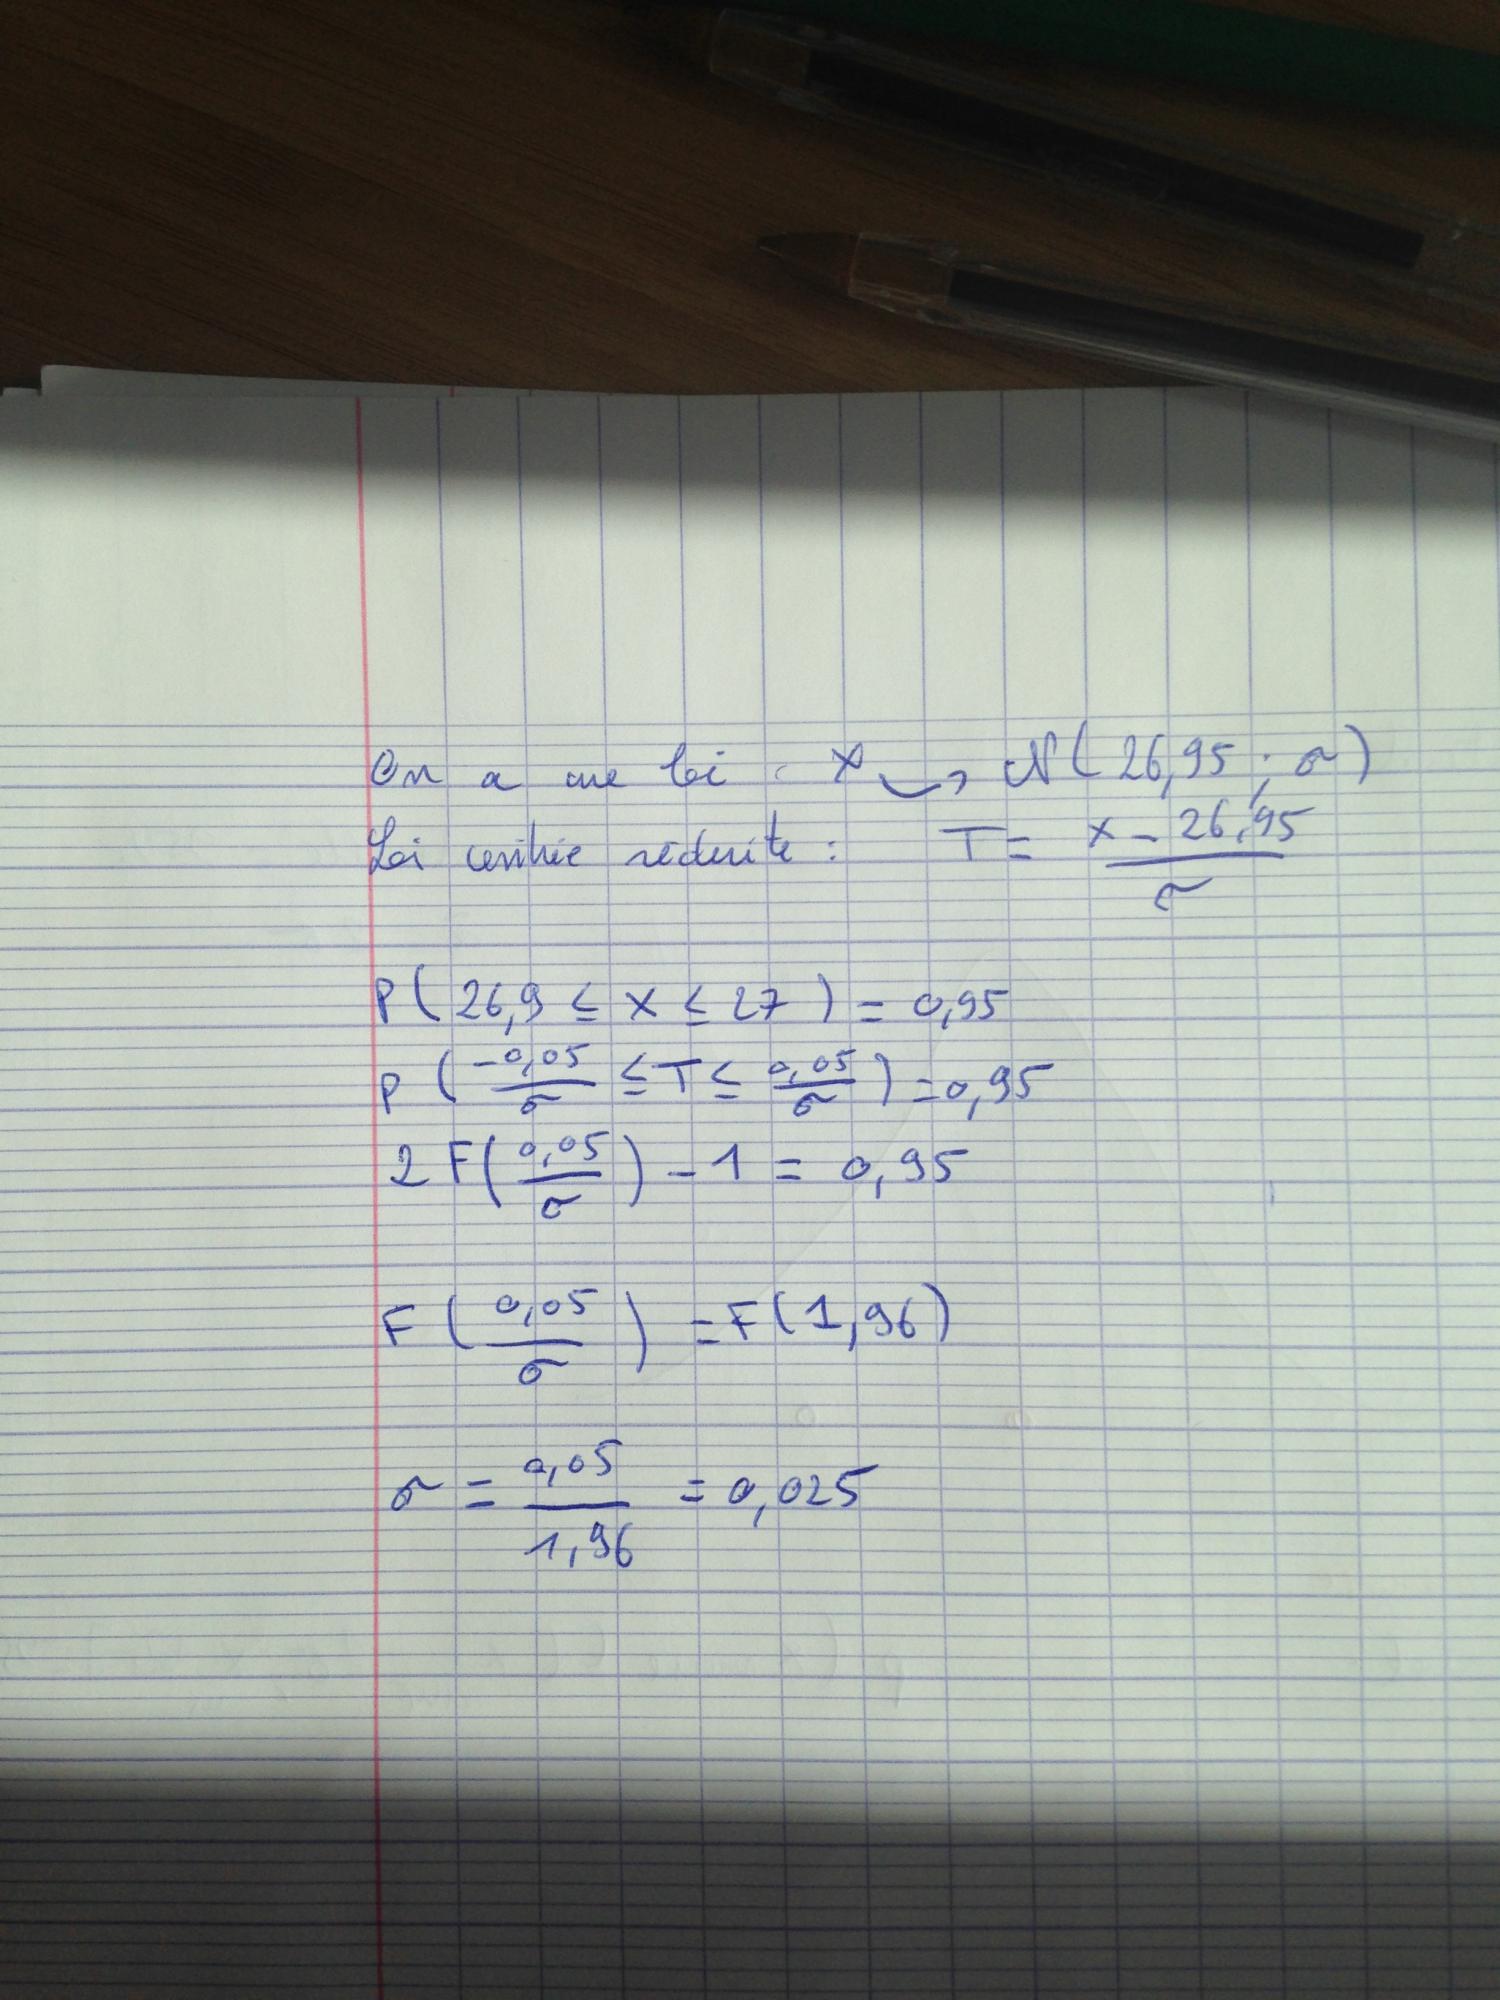 On a une loi : X ⤳ N(26,95 ; σ)
Loi centrée réduite : T = (X - 26,95)/σ
P(26,9 ≤ X ≤ 27) = 0,95
P(-0,05/σ ≤ T ≤ 0,05/σ) = 0,95
2F(0,05/σ) - 1 = 0,95
F(0,05/σ) = F(1,96)
σ = 0,05/1,96 = 0,025